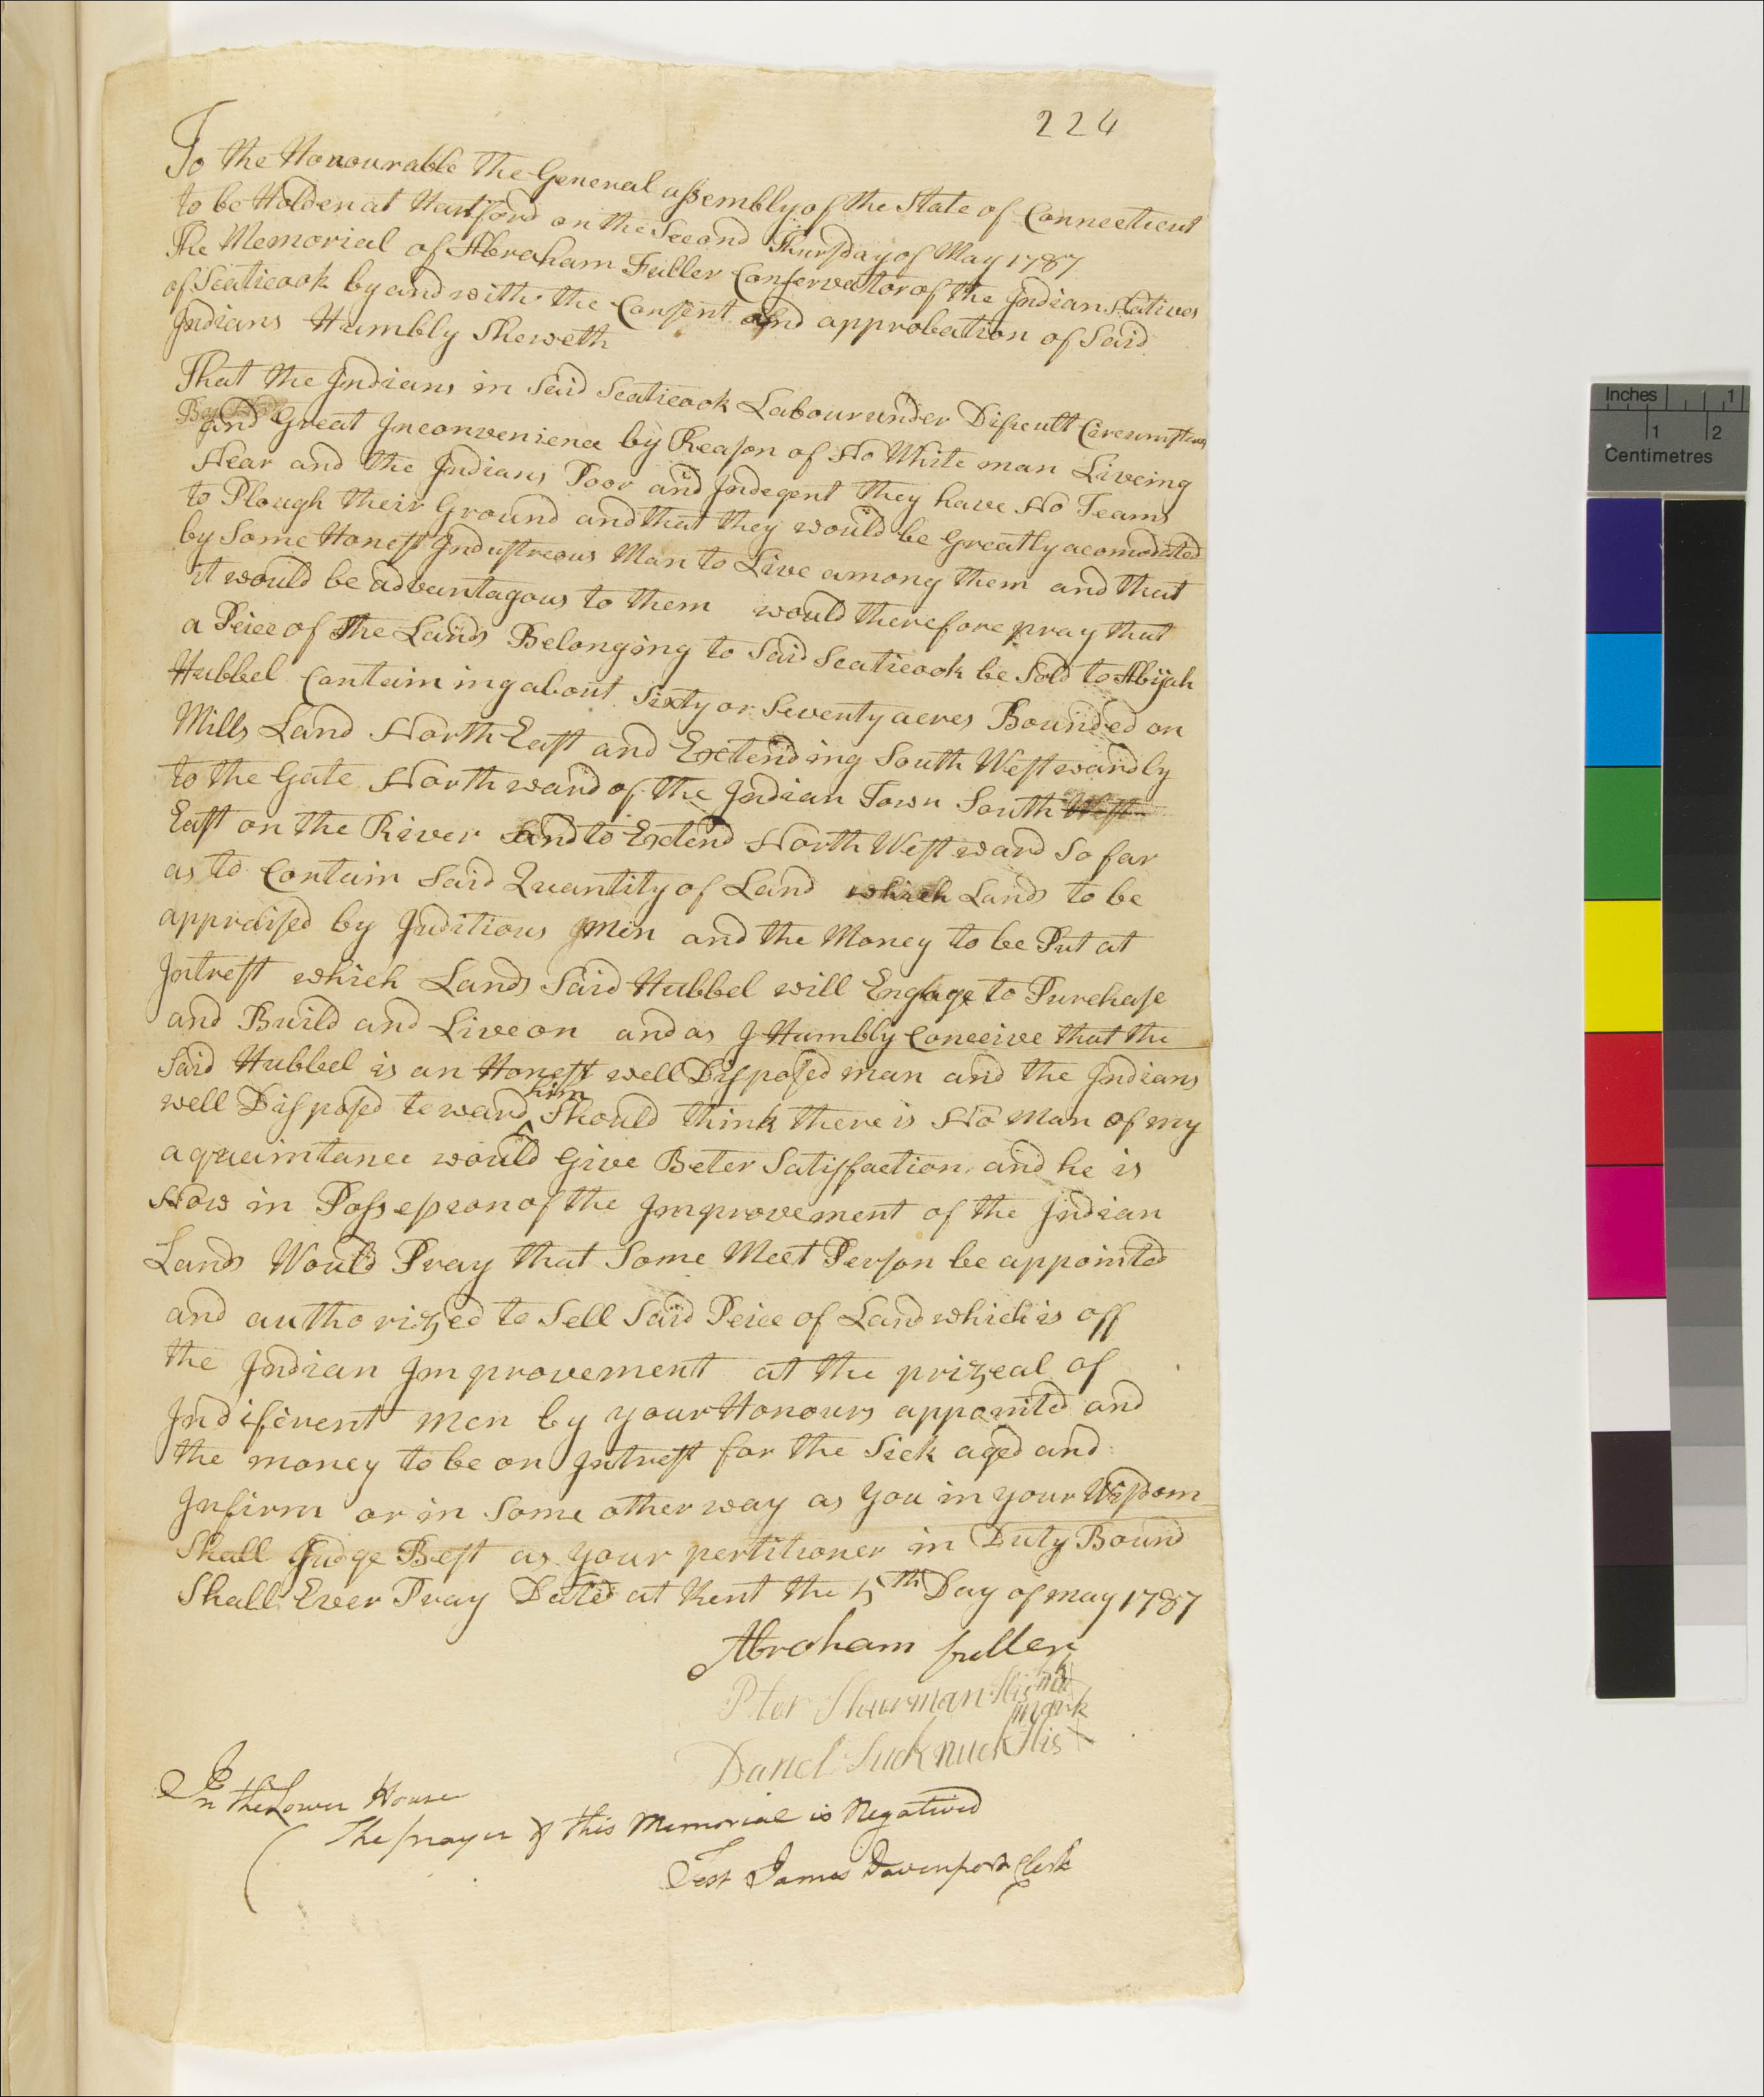 224
To the Honourable the General assembly of the State of Connecticut
to be Holden at Hartford on the Second Thursday of May 1787
The Memorial of Abraham Fuller Conservator of the Indian Natives
of Scaticook by and with the Consent and approbation of Said
Indians Humbly Sheweth
That the Indians in Said Scaticook Labour under Dificult Circumstan
and Great Inconvenience by Reason of No White man Liveing
Near and the Indians Poor and Indegent they have No Teams
to Plough their Ground and that they would be Greatly acomodated
by Some Honest Industreous Man to Live among them and that
it would be advantagous to them would therefore pray that
a Peice of the Lands Belonging to Said Scaticook be Sold to Abijah
Hubbel Containing about Sixty or Seventy acres Bounded on
Mills Land North East and Extending South Westwardly
to the Gate Northward of the Indian Town South West
East on the River and to Extend North Westward So far
as to Contain Said Quantity of Land which Lands to be
appraised by Juditious Men and the Money to be Put at
Intrest which Lands Said Hubbel will Engage to Purchase
and Build and Live on and as I Humbly Conceive that the
Said Hubbel is an Honest well Disposed man and the Indians
well Disposed toward him Should think there is No Man of my
aquaintance would Give Beter Satisfaction and he is
Now in Possession of the Improvement of the Indian
Lands Would Pray that Some Meet Person be appointed
and authorized to Sell Said Peice of Land which is off
the Indian Improvement at the prizeal of
Indiferent men by your Honours appointed and
the money to be on Intrest for the Sick aged and
Infirm or in Some other way as you in your Wisdom
Shall Judge Best as your pertitioner in Duty Bound
Shall Ever Pray Dated at Kent the 5th Day of may 1787
Abraham fuller
Pter Shurman His mark
Danel Suck nuck His X mark
In the Lower House
The prayer of this Memorial is Negatived
Test James Davenport Clerk
Inches 1
1 2
Centimetres